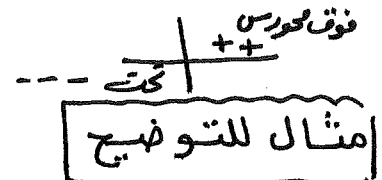 فوق محور س
++
تحت ---
مثال للتوضيح